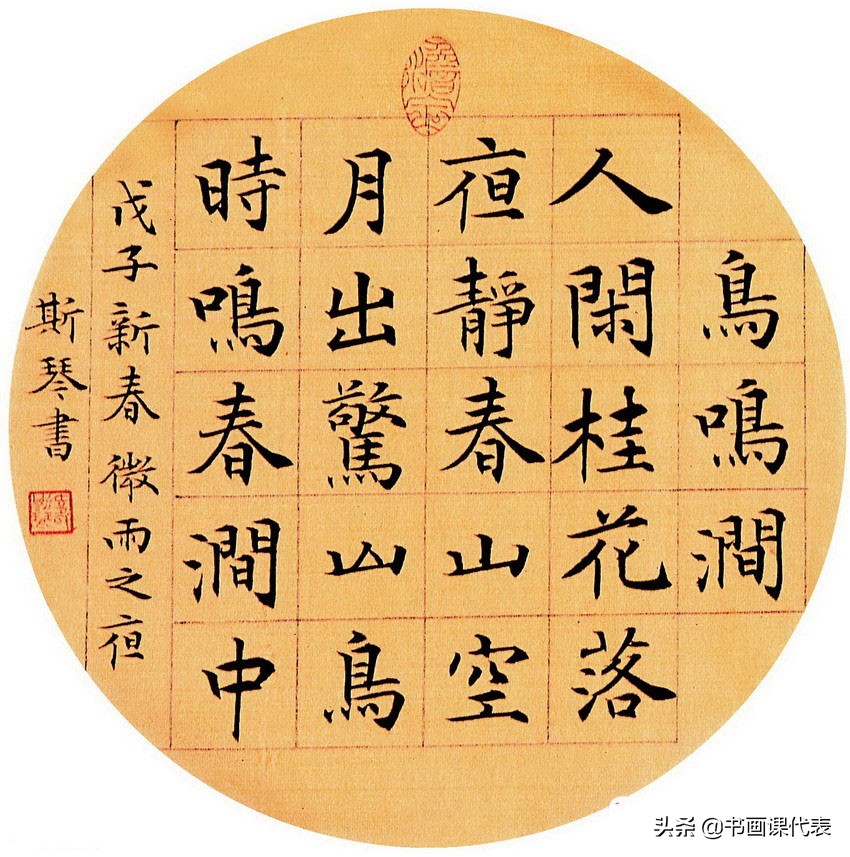 鳥鳴澗
人閑桂花落
亱靜春山空
月出驚山鳥
時鳴春澗中
戊子新春微雨之亱
斯琴書
头条 @书画课代表